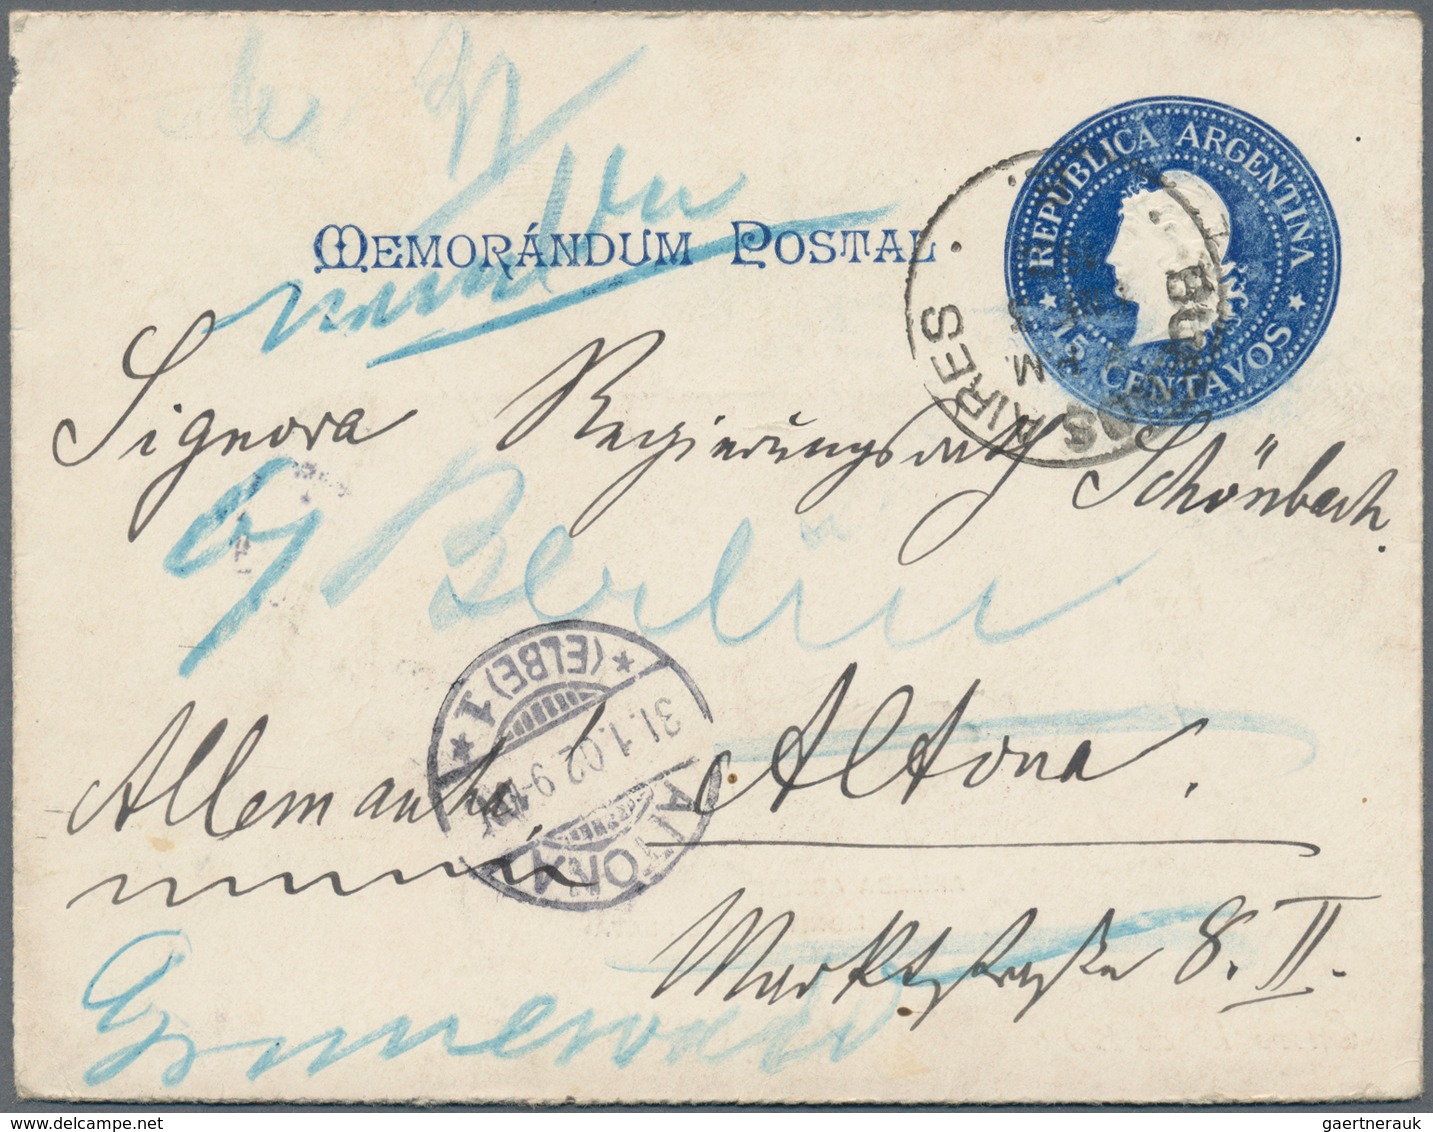 REPUBLICA ARGENTINA
15 CENTAVOS
MEMORÁNDUM POSTAL
BUENOS AIRES
Signora Regierungsrath Schönbach.
Berlin
ALTONA
31.1.02 9-10V.
* (ELBE) 1 *
Allemania Altona.
Marktstraße 8. II.
Grunewald
gaertnerauk